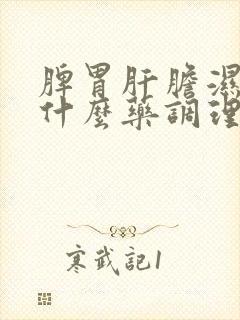 脾胃肝膽濕
什麼藥調理
寒武記1